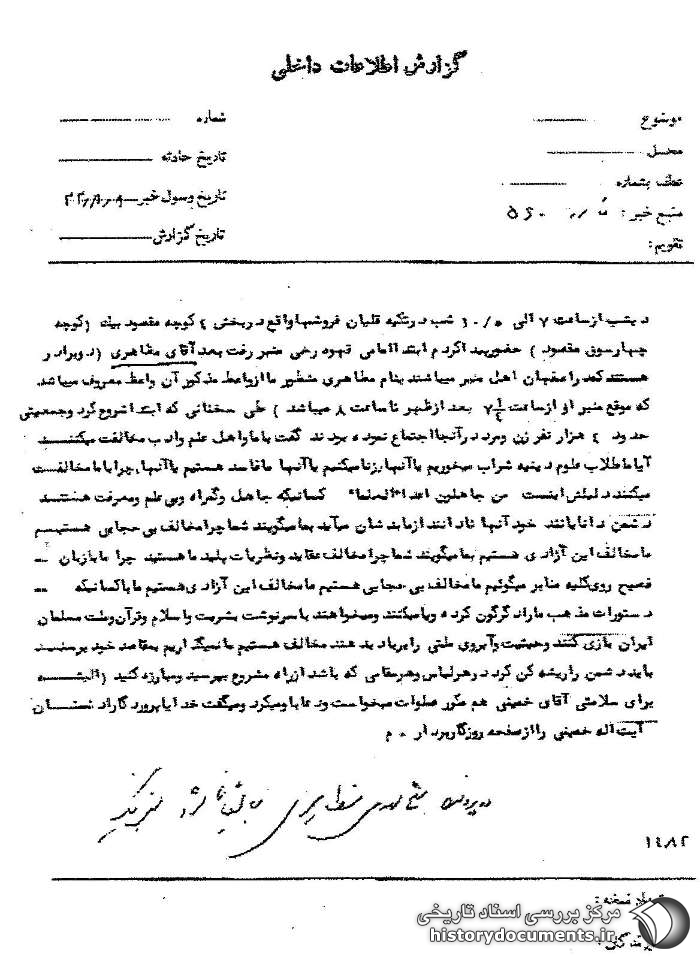 گزارش اطلاعات داخلی
موضوع
شماره
محل
تاریخ حادثه
عطف بشماره
تاریخ وصول خبر
منبع خبر:
تاریخ گزارش
تقویم:
دیشب از ساعت ۷ الی ۱۰/۵ شب در تکیه قلیان فروشها واقع در بخش ۴ کوچه مقصود بیک (کوچه
چهارسوق مقصود) حضور پیدا کردم ابتدا امامی قهوه رخی منبر رفت بعد آقای مظاهری (دو برادر
هستند که در اصفهان اهل منبر میباشند بنام مظاهری منظور ما از واعظ مذکور آن واعظ معروف میباشد
که موقع منبر او از ساعت ۷ ۱/۴ بعد از ظهر تا ساعت ۸ میباشد) طی سخنانی که ابتدا شروع کرد و جمعیتی
حدود ۴ هزار نفر زن و مرد در آنجا اجتماع نموده بودند گفت با ما و اهل علم و ادب مخالفت میکنند
آیا ما طلاب علوم دینیه شراب میخوریم یا آنها زنا میکنیم یا آنها ما فاسد هستیم یا آنها چرا با ما مخالفت
میکنند دلیلش اینست من جاهلون اعداء العلماء کسانیکه جاهل و گمراه و بی علم و معرفت هستند
دشمن دانایانند خود آنها نادانند از ما بدشان میآید بما میگویند شما چرا مخالف بی حجابی هستیم
ما مخالف این آزادی هستیم بما میگویند شما چرا مخالف عقاید و نظریات پلید ما هستید چرا ما با زبان
فصیح روی کلیه منابر میگوئیم ما مخالف بی حجابی هستیم ما مخالف این آزادی هستیم ما با کسانیکه
دستورات مذهب ما را دگرگون کرده و یا میکنند و میخواهند با سرنوشت بشریت و اسلام و قرآن و ملت مسلمان
ایران بازی کنند و حیثیت و آبروی ملتی را برباد بدهند مخالف هستیم ما نمیگذاریم بمقاصد خود برسند
باید دشمن را ریشه کن کرد در هر لباس و هر مقامی که باشد از راه مشروع بپرسید و مبارزه کنید (البته
برای سلامتی آقای خمینی هم مکرر صلوات میخواست و دعا باو میکرد و میگفت خدایا پروردگارا دشمنان
آیت اله خمینی را از صفحه روزگار بردار. م
۱۴۸۲
تعداد نسخه:
مرکز بررسی اسناد تاریخی
historydocuments.ir